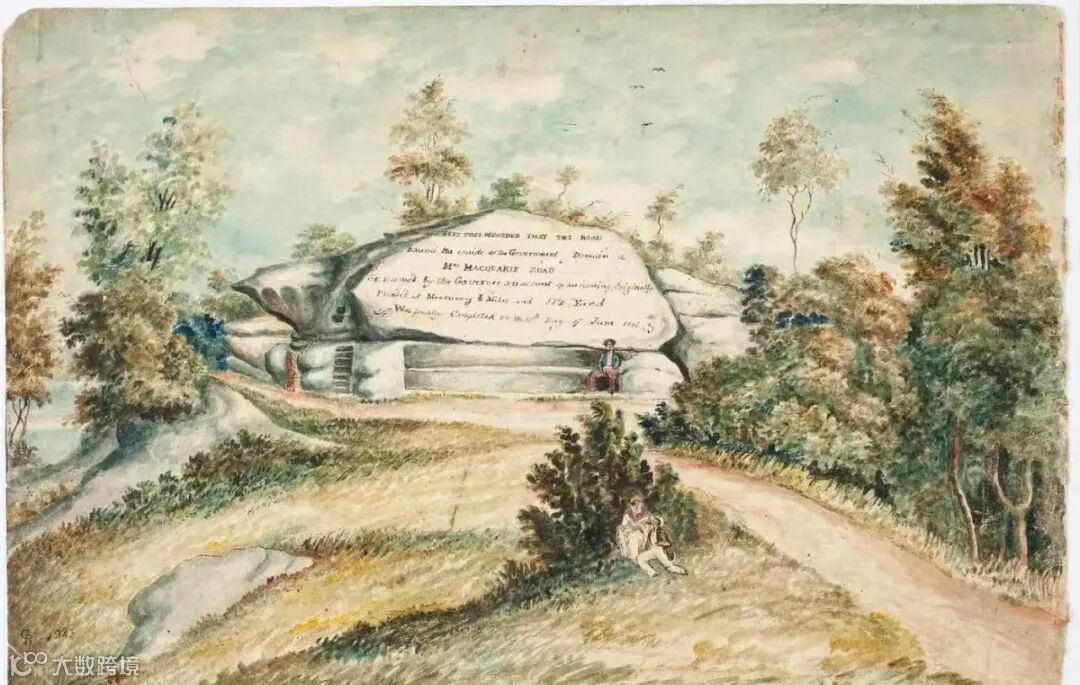 THUS RECORDED THAT THE ROAD
Round the inside of the Government Domain
Mrs MACQUARIE ROAD
So named by the Governor on account of her having Originally
Planned it Measuring 3 Miles and 377 Yard
Was finally Completed on the 13th Day of June 1816
大数跨境